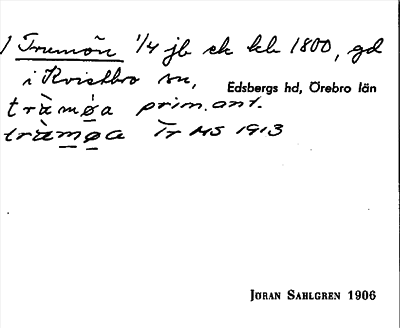 ) Trumön 1/4 jb sk kb 1800, gd
i Kvistbro sn,
Edsbergs hd, Örebro län
tràmǿa prim. ant.
tràmøa Tr MS 1913
JÖRAN SAHLGREN 1906